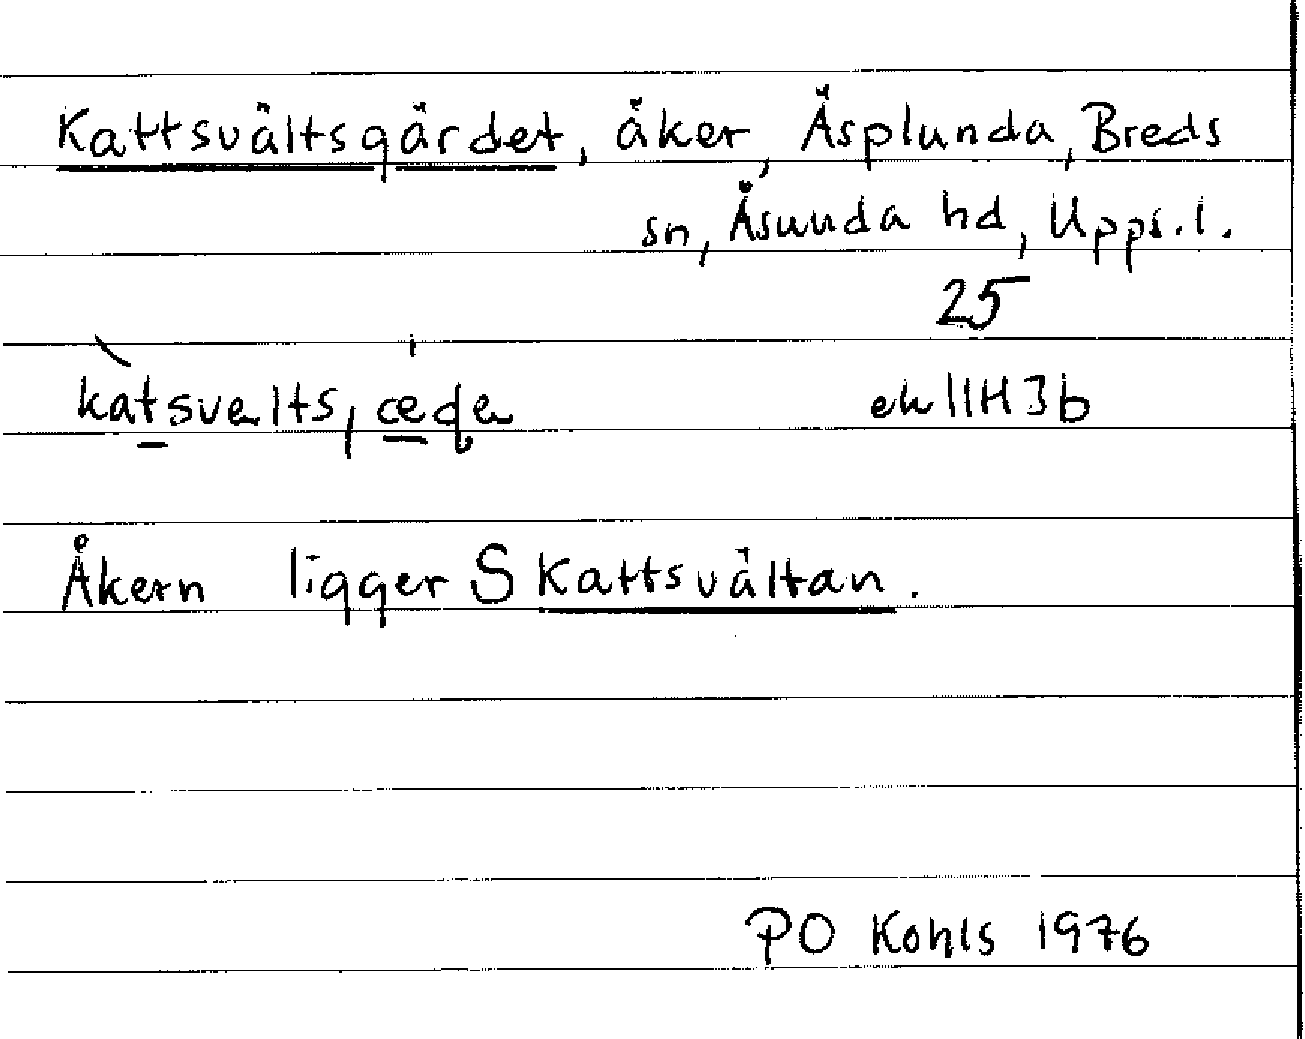 Kattsvältsgärdet, åker, Äsplunda, Breds
sn, Åsunda hd, Upps.l.
25
katsvelts, ek 11H3b
Åkern ligger S Kattsvältan.
PO Kohls 1976